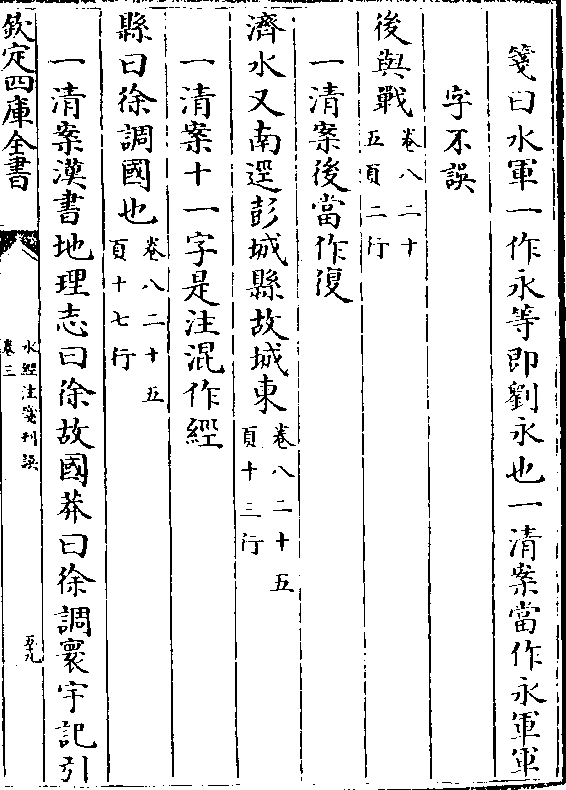 箋曰水軍一作永等即劉永也一清案當作永軍軍
字不誤
後與戰卷八二十五頁二行
一清案後當作復
濟水又南逕彭城縣故城東卷八二十五頁十三行
一清案十一字是注混作經
縣曰徐調國也卷八二十五頁十七行
一清案漢書地理志曰徐故國莽曰徐調寰宇記引
欽定四庫全書
水經注箋刊誤
卷三
五十九